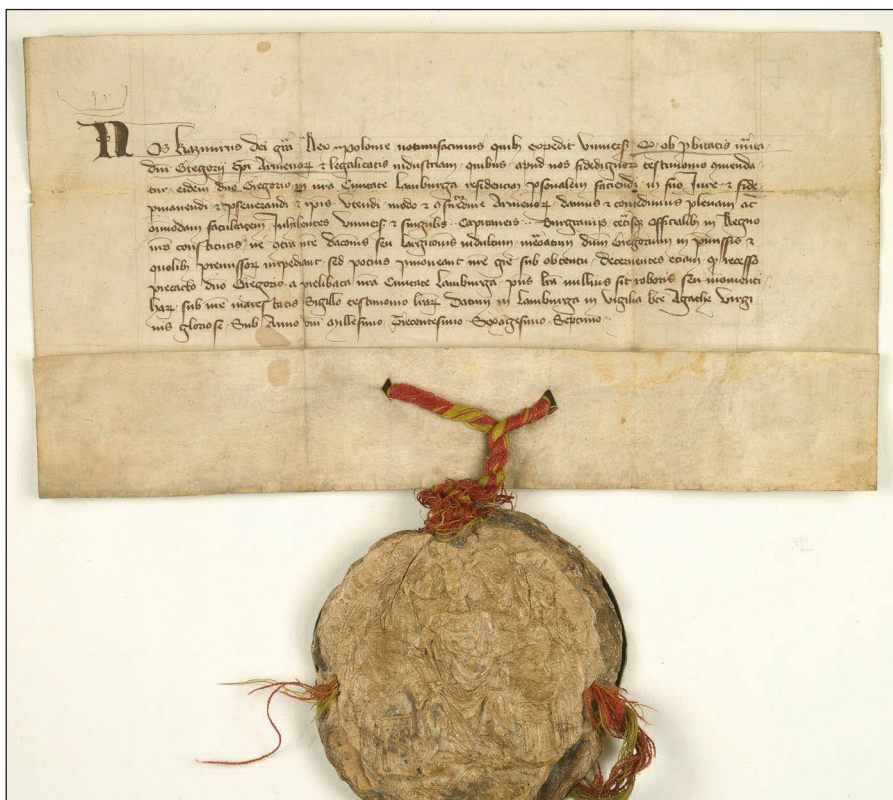 Nos Kazimirus dei gra Rex Polonie notumfacimus quibz expedit vniuersis Qz ob pbitatis
dni Gregorij Epi Armenorz et legalitatis industriam quibus apud nos fidedignorz testimonio
tur eidem dno Gregorio in nra Ciuitate Lamburga residenciam psonalem faciendi in suo Jure et fide
pmanendi et pseuerandi et ipis vtendi modo et Armenorz damus et concedimus plenam ac
omnimodam facultatem Inhibentes vniuersis et singulis Capitaneis Burgrauijs Officialibz in Regno
nro constitutis ne nre seu largicionis indultum dnm Gregorium in pmissis et
quolibz premissorz impediant sed pocius pmoueant nre gre sub obtentu decernentes eciam qz recesso
dno Gregorio a prelibata nra Ciuitate Lamburga pns lra nullius sit roboris seu momenti
harz sub nre maiestatis Sigillo testimonio lrarz Datum in Lamburga in vigilia bte Agathe virgi
nis gloriose Sub Anno dni Millesimo Trecentesimo Sexagesimo Septimo